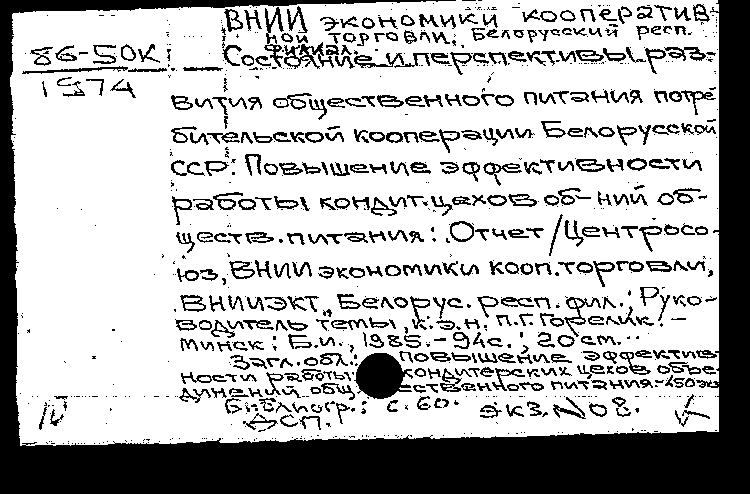 ВНИИ экономики кооператив-
ной торговли. Белорусский респ.
филиал.
86-50К
1974
Состояние и перспективы раз-
вития общественного питания потре
бительской кооперации Белорусской
ССР: Повышение эффективности
работы кондит.цехов об-ний об-
ществ.питания: Отчет/Центросо-
юз, ВНИИ экономики кооп.торговли,
ВНИИЭКТ, Белорус.респ.фил.; Руко-
водитель темы, к.э.н. П.Г.Горелик.-
Минск: Б.и., 1985.-94с.; 20см...
Загл.обл.: Повышение эффектив
ности работы кондитерских цехов объе-
динений общественного питания.-450экз
Библиогр.: с.60. экз.№08.
ДСП.